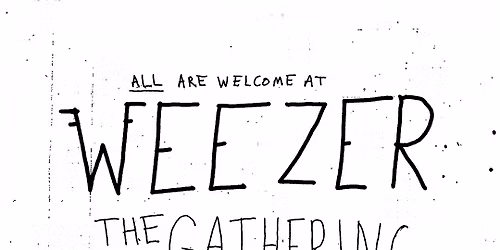 ALL ARE WELCOME AT
WEEZER
THE GATHERING